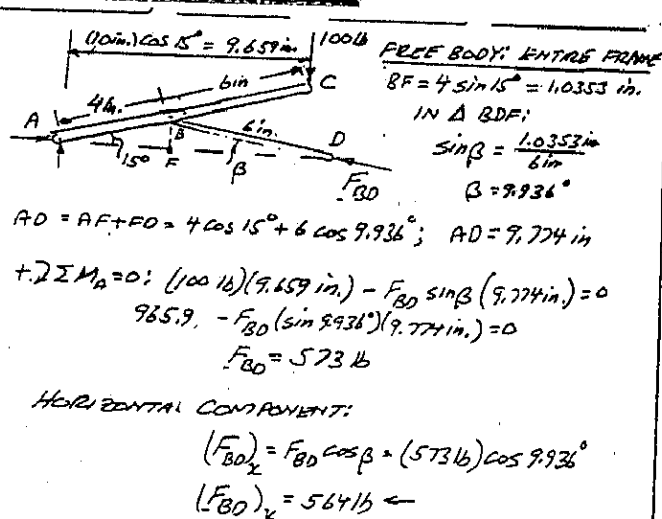 (10in.) cos 15° = 9.659in.
100lb
FREE BODY: ENTIRE FRAME
6in
C
BF = 4 sin 15° = 1.0353 in.
4in.
IN Δ BDF:
A
B
6in.
D
sinβ = 1.0353in / 6in
15°
F
β
F_BD
β = 9.936°
AD = AF+FD = 4 cos 15° + 6 cos 9.936°; AD = 9.774 in
+⤸ΣM_A=0: (100 lb)(9.659 in.) - F_BD sinβ (9.774in.) = 0
965.9. - F_BD (sin 9.936°)(9.774 in.) = 0
F_BD = 573 lb
HORIZONTAL COMPONENT:
(F_BD)_x = F_BD cosβ = (573 lb) cos 9.936°
(F_BD)_x = 564 lb ←